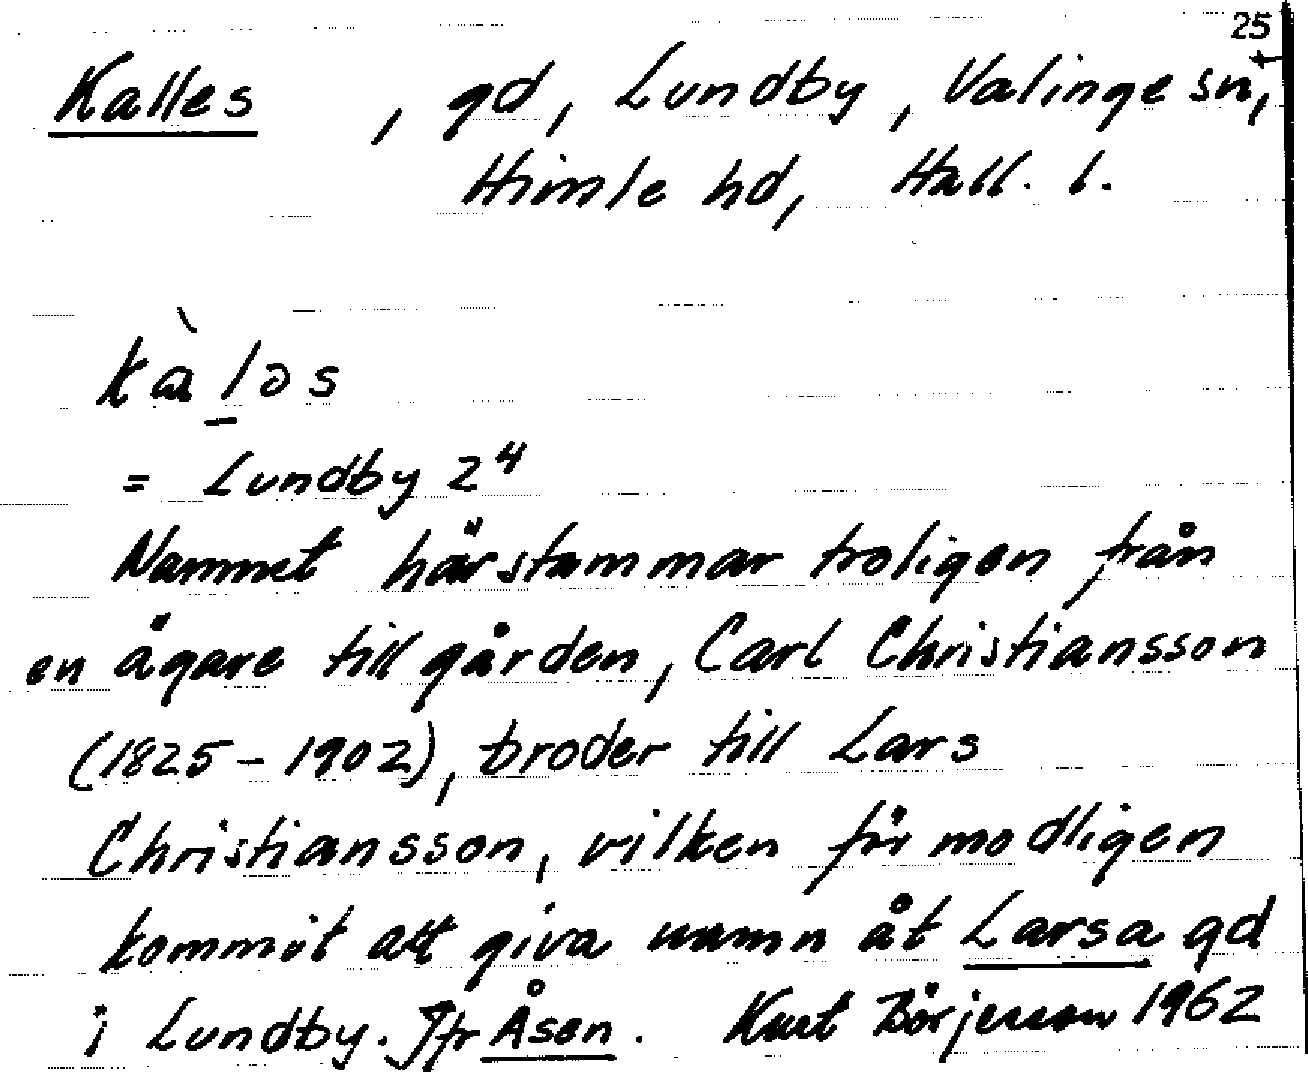 25
Kalles, gd, Lundby, Valinge sn,
Himle hd, Hall. l.
kàl̲əs
= Lundby 2⁴
Namnet härstammar troligen från
en ägare till gården, Carl Christiansson
(1825-1902), broder till Lars
Christiansson, vilken förmodligen
kommit att giva namn åt Larsa gd
i Lundby. Jfr Åsen. Kurt Börjesson 1962